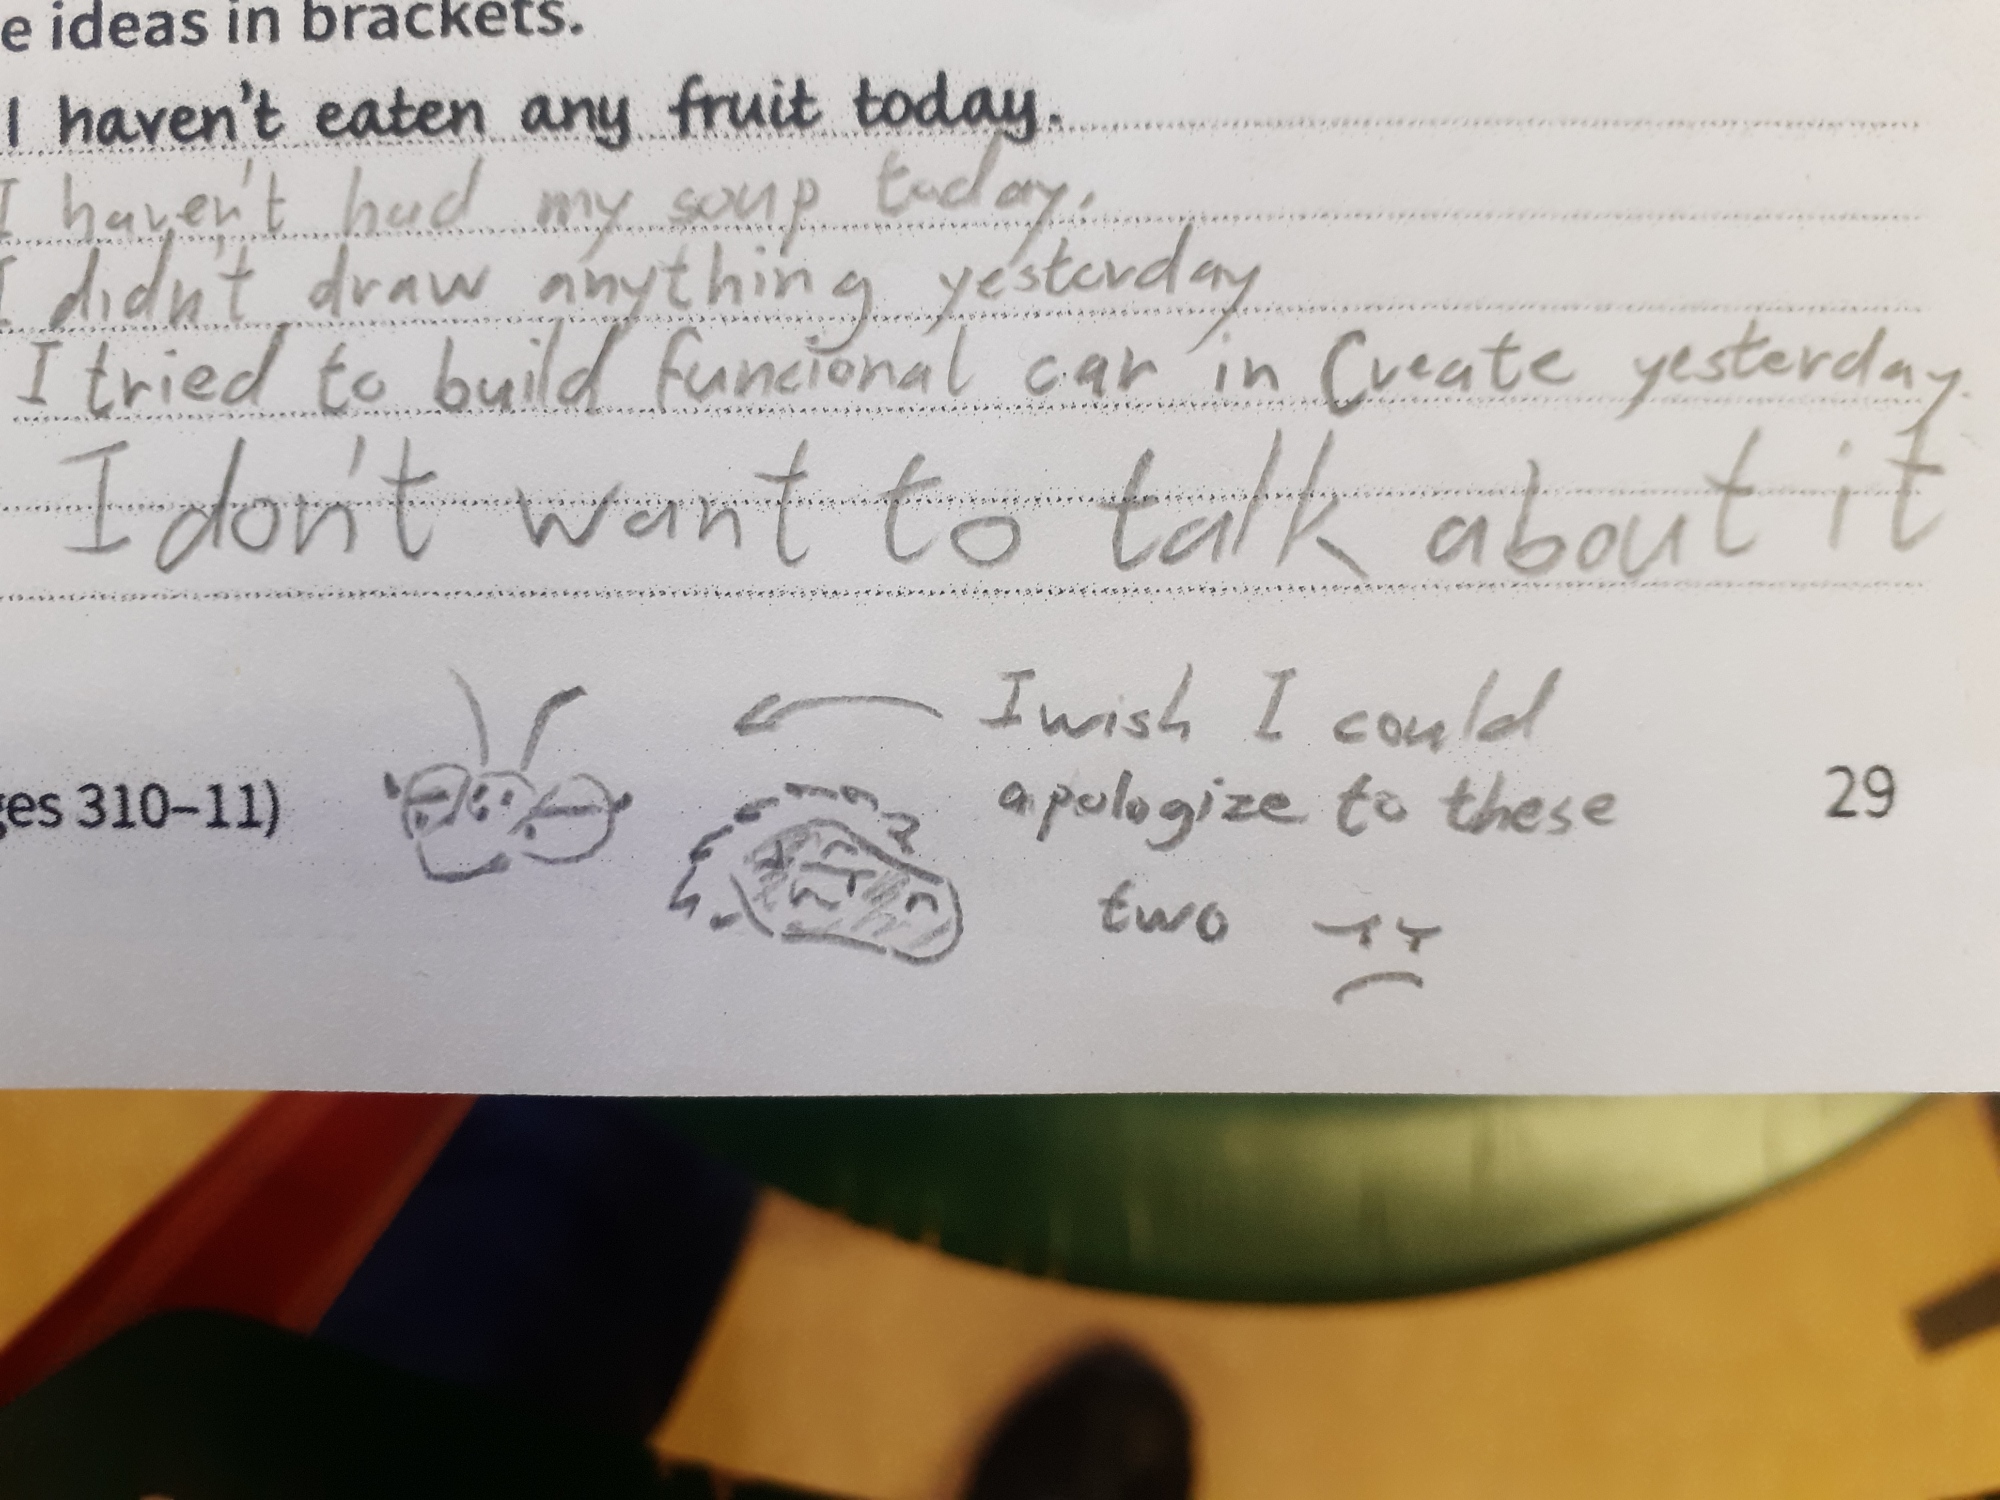 e ideas in brackets.
I haven't eaten any fruit today.
I haven't had my soup today.
I didn't draw anything yesterday
I tried to build funcional car in Create yesterday.
I don't want to talk about it
I wish I could
apologize to these
two
ges 310–11)
29